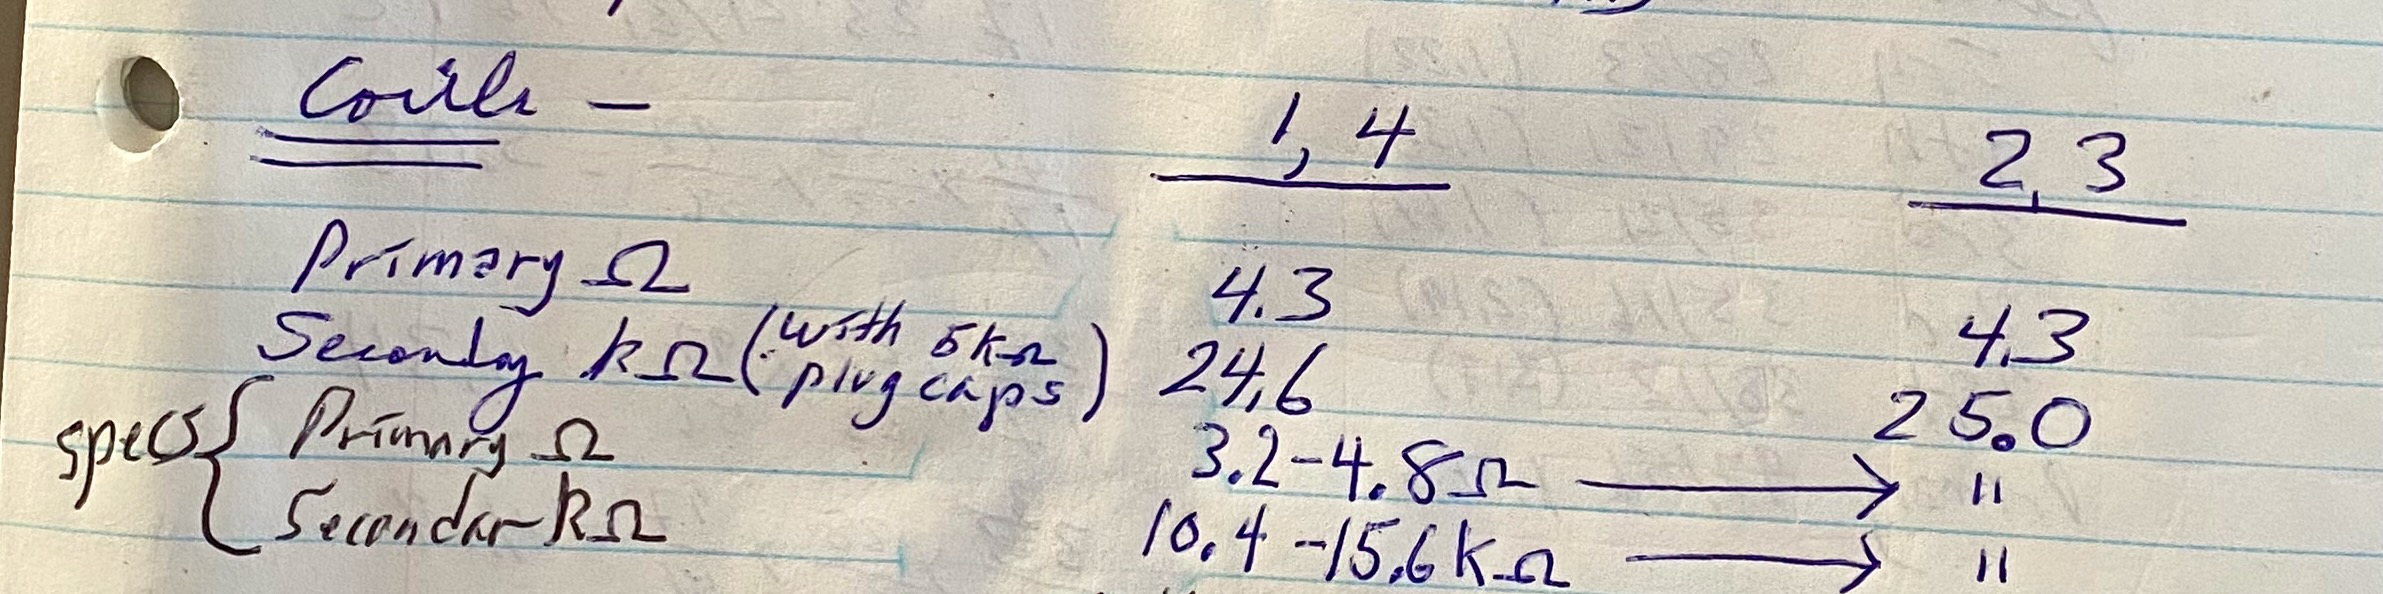 Coils - 1, 4 2, 3
Primary Ω 4.3 4.3
Secondry kΩ (with 5kΩ plug caps) 24.6 25.0
specs { Primary Ω 3.2-4.8Ω → "
Secondar kΩ 10.4-15.6kΩ → "